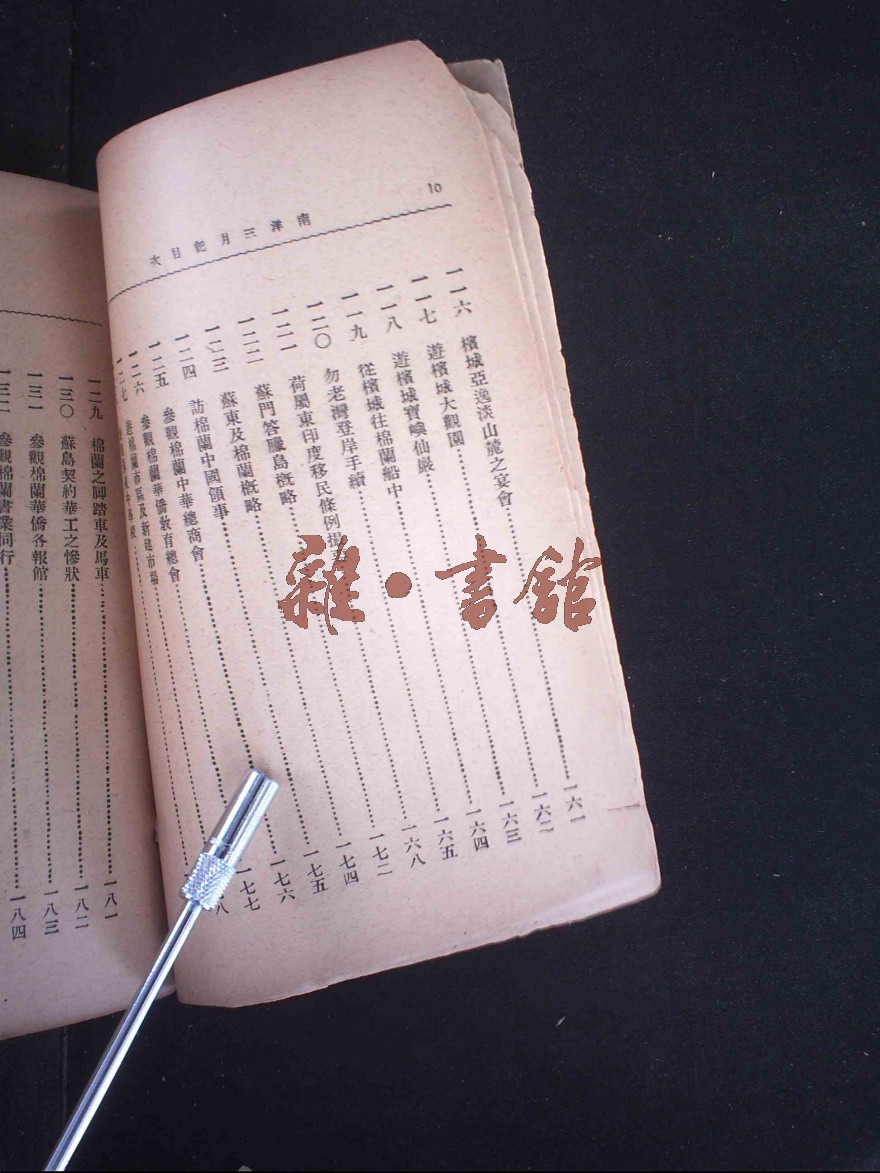 10
南洋三月記目次
一一六 檳城亞逸淡山麓之宴會 一六一
一一七 遊檳城大觀園 一六二
一一八 遊檳城寶嶼仙巖 一六三
一一九 從檳城往棉蘭船中 一六四
一二〇 勿老灣登岸手續 一六五
一二一 荷屬東印度移民條例 一六八
一二二 蘇門答臘島概略 一七二
一二三 蘇東及棉蘭概略 一七四
一二四 訪棉蘭中國領事 一七五
一二五 參觀棉蘭中華總商會 一七六
一二六 參觀棉蘭華僑教育總會 一七七
一二七 遊棉蘭市區及新建市場 八
一二九 棉蘭之脚踏車及馬車 一八一
一三〇 蘇島契約華工之慘狀 一八二
一三一 參觀棉蘭華僑各報館 一八三
一三二 參觀棉蘭書業同行 一八四
雜·書館